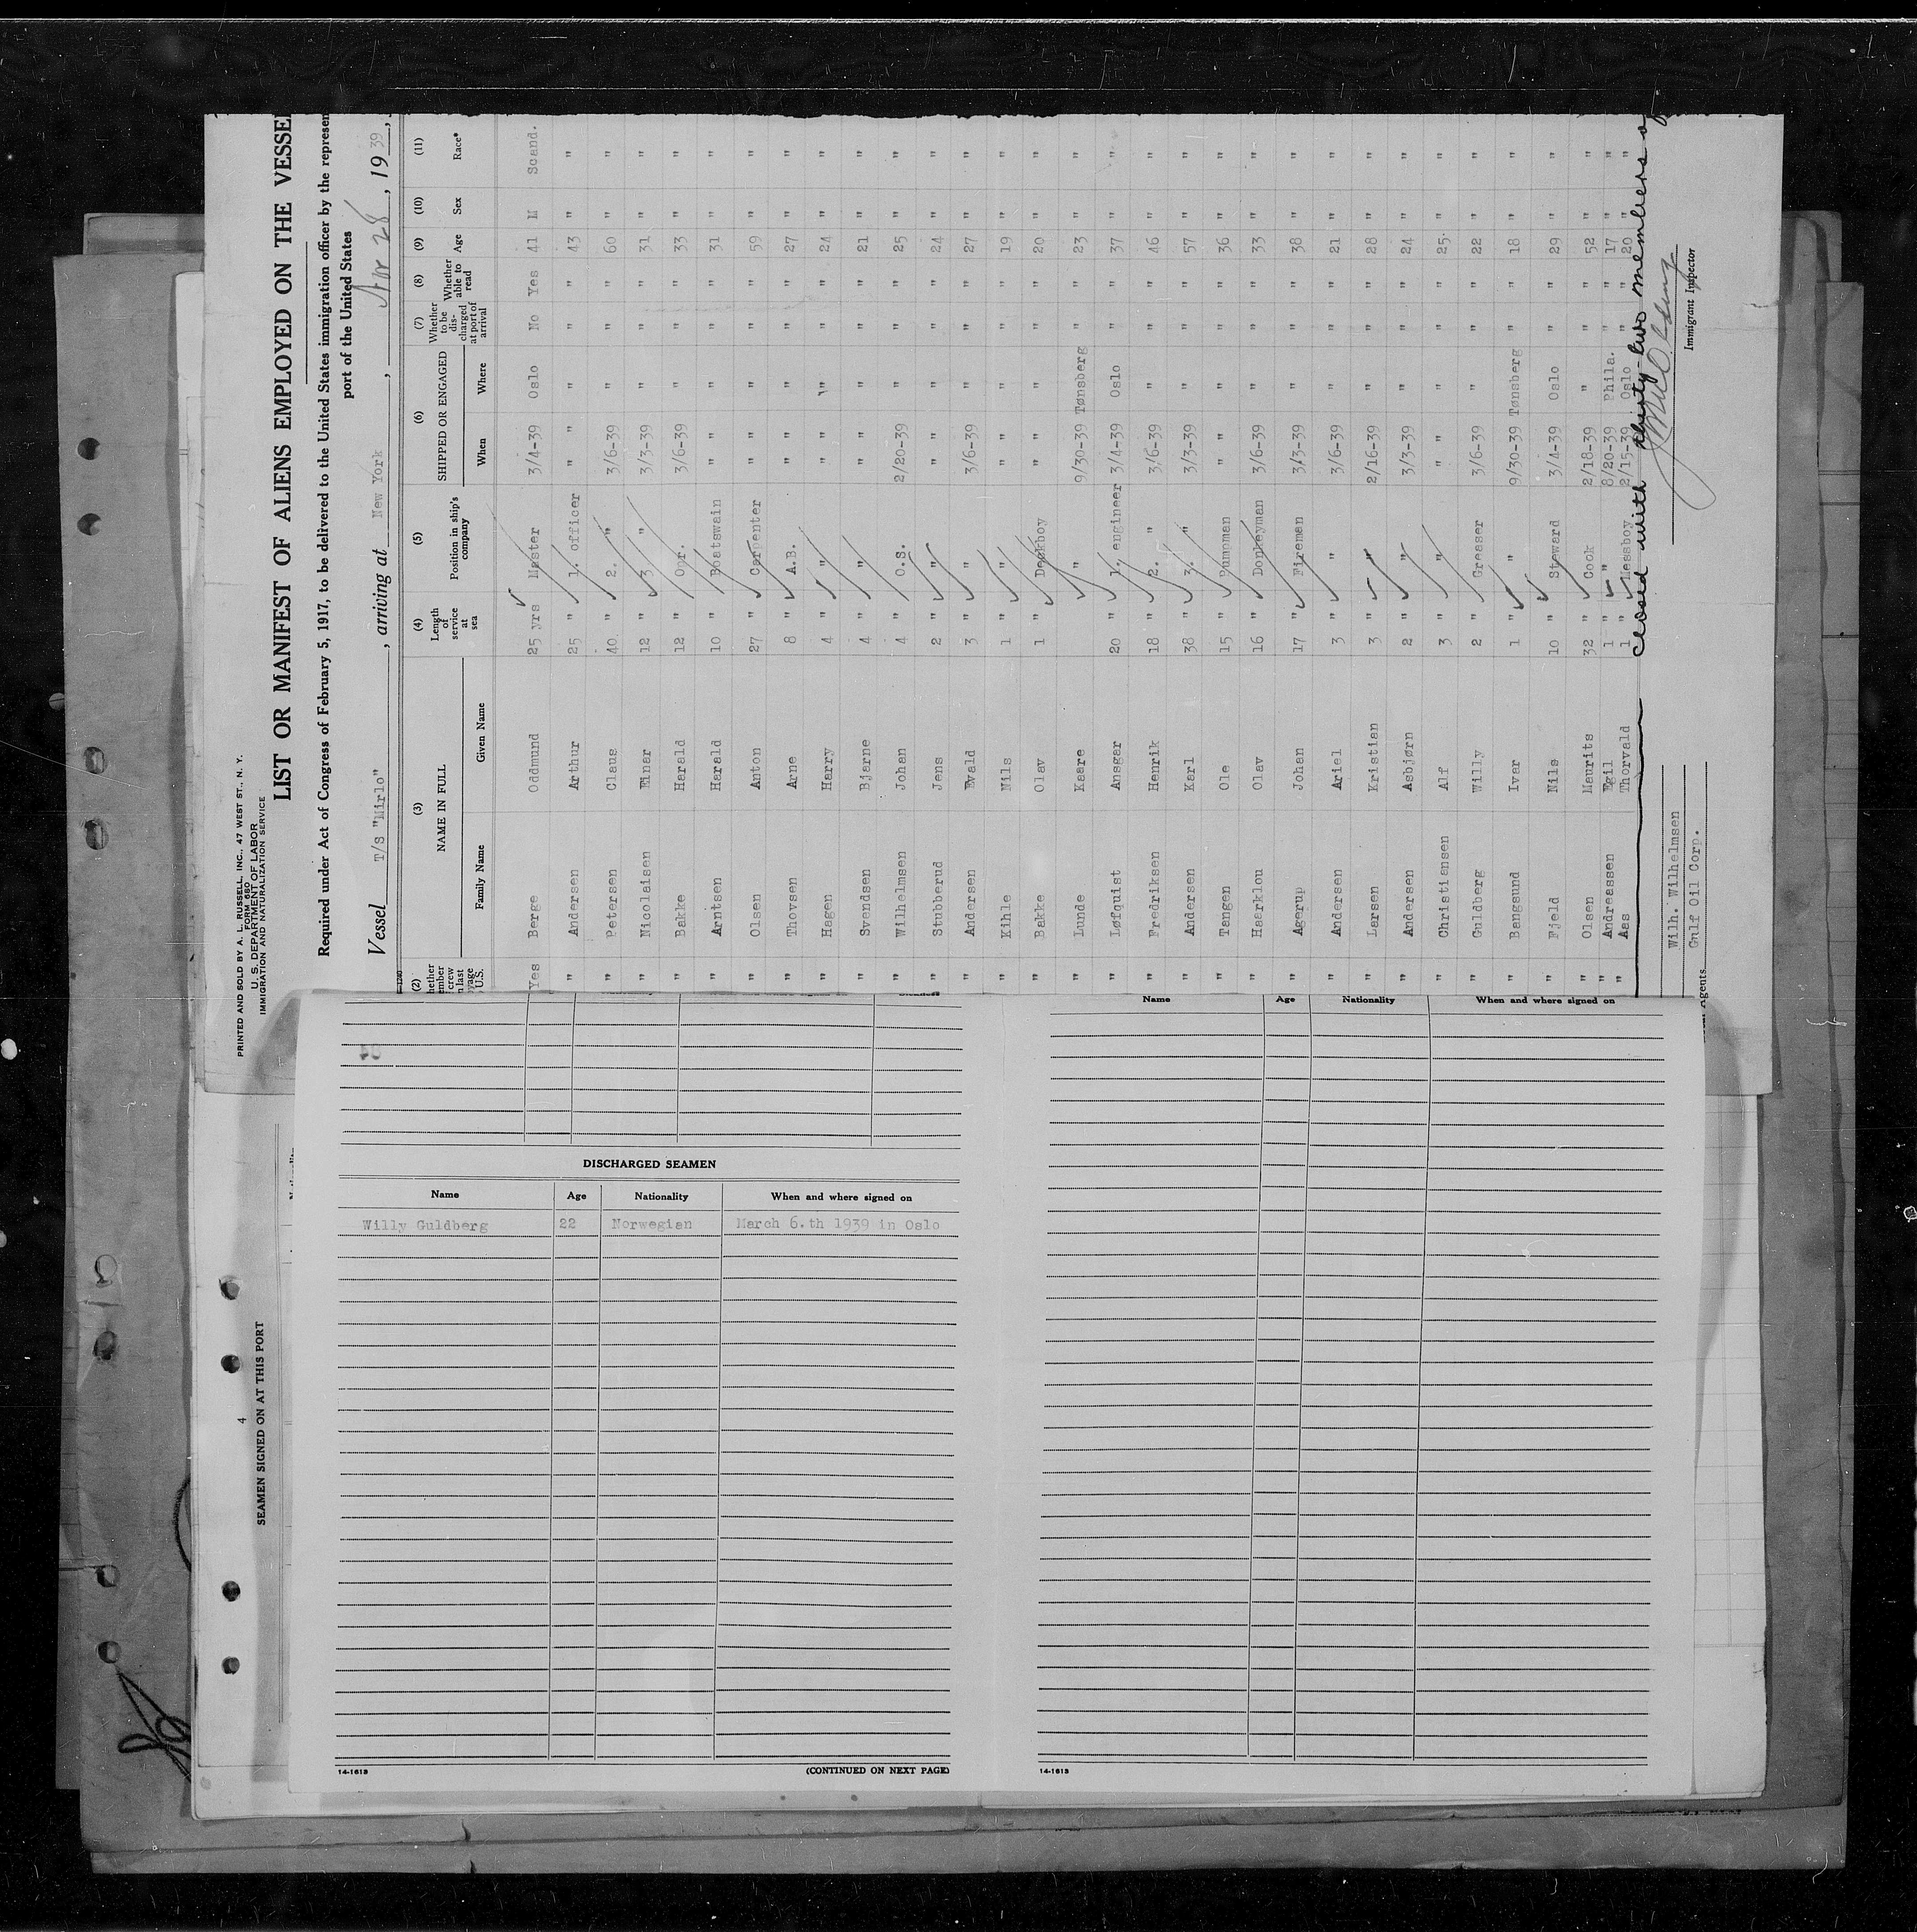 PRINTED AND SOLD BY A. L. RUSSELL, INC., 47 WEST ST., N. Y.
FORM 680
U. S. DEPARTMENT OF LABOR
IMMIGRATION AND NATURALIZATION SERVICE
LIST OR MANIFEST OF ALIENS EMPLOYED ON THE VESSEL
Required under Act of Congress of February 5, 1917, to be delivered to the United States immigration officer by the represen
port of the United States
Vessel T/S "Mirlo", arriving at New York, 28, 1939,
(2) (3) (4) (5) (6) (7) (8) (9) (10) (11)
NAME IN FULL Length of service at sea Position in ship's company SHIPPED OR ENGAGED Whether to be discharged at port of arrival Whether able to read Age Sex Race*
Family Name Given Name When Where
Yes Berge Oddmund 25 yrs Master 3/4-39 Oslo No Yes 41 M Scand.
" Andersen Arthur 25 " 1. officer " " " " 43 " "
" Petersen Claus 40 " 2. " 3/6-39 " " " 60 " "
" Nicolaisen Einar 12 " 3 " 3/3-39 " " " 31 " "
" Bakke Harald 12 " Opr. 3/6-39 " " " 33 " "
" Arntsen Harald 10 " Boatswain " " " " 31 " "
" Olsen Anton 27 " Carpenter " " " " 59 " "
" Thovsen Arne 8 " A.B. " " " " 27 " "
" Hagen Harry 4 " " " " " " 24 " "
" Svendsen Bjarne 4 " " " " " " 21 " "
" Wilhelmsen Johan 4 " O.S. 2/20-39 " " " 25 " "
" Stubberud Jens 2 " " " " " " 24 " "
" Andersen Evald 3 " " 3/6-39 " " " 27 " "
" Kihle Nils 1 " " " " " " 19 " "
" Bakke Olav 1 " Deckboy " " " " 20 " "
" Lunde Kaare " " 9/30-39 Tønsberg " " 23 " "
" Løfquist Ansgar 20 " 1. engineer 3/4-39 Oslo " " 37 " "
" Fredriksen Henrik 18 " 2. " 3/6-39 " " " 46 " "
" Andersen Karl 38 " 3. " 3/3-39 " " " 57 " "
" Tangen Ole 15 " Pumpman " " " " 36 " "
" Haarklou Olav 16 " Donkeyman 3/6-39 " " " 33 " "
" Agerup Johan 17 " Fireman 3/3-39 " " " 38 " "
" Andersen Ariel 3 " " 3/6-39 " " " 21 " "
" Larsen Kristian 3 " " 2/16-39 " " " 28 " "
" Andersen Asbjørn 2 " " 3/3-39 " " " 24 " "
" Christiansen Alf 3 " " " " " " 25 " "
" Guldberg Willy 2 " Greaser 3/6-39 " " " 22 " "
" Bangsund Ivar 1 " " 9/30-39 Tønsberg " " 18 " "
" Fjeld Nils 10 " Steward 3/4-39 Oslo " " 29 " "
" Olsen Maurits 32 " Cook 2/18-39 " " " 52 " "
" Andreassen Egil 1 " " 8/20-39 Phila. " " 17 " "
" Aas Thorvald 1 " Messboy 2/15-39 Oslo " " 20 " "
closed with thirty-two members
Wilh. Wilhelmsen
Gulf Oil Corp.
Agents
Immigrant Inspector
Name Age Nationality When and where signed on
DISCHARGED SEAMEN
Name Age Nationality When and where signed on
Willy Guldberg 22 Norwegian March 6.th 1939 in Oslo
14-1613 (CONTINUED ON NEXT PAGE)
14-1613
4
SEAMEN SIGNED ON AT THIS PORT